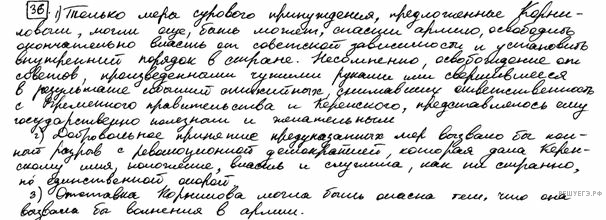 36. 1) Только меры сурового принуждения, предложенные Корни-
ловым, могли еще, быть может, спасти армию, освободить
окончательно власть от советской зависимости и установить
внутренний порядок в стране. Несомненно, освобождение от
советов, произведенными чужими руками или свершившееся
в результате событий стихийных, снимавших ответственность
с Временного правительства и Керенского, представлялось ему
государственно полезным и желательным
2) Добровольное принятие предуказанных мер вызвало бы пол-
ный разрыв с революционной демократией, которая дала Керен-
скому имя, положение, власть и служила, как ни странно,
но единственной опорой
3) Отставка Корнилова могла быть опасна тем, что она
вызвала бы волнения в армии.
РЕШУЕГЭ.РФ